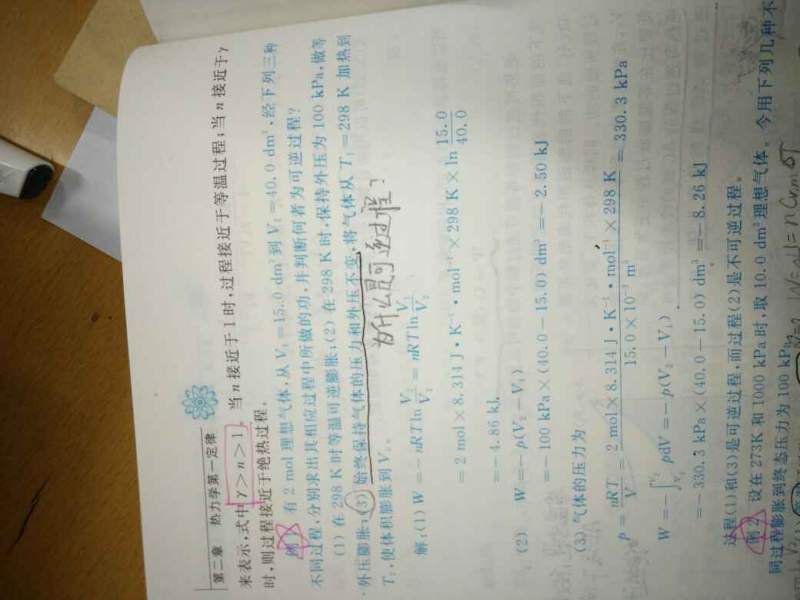 第二章 热力学第一定律
来表示,式中 γ>n>1。当 n 接近于 1 时,过程接近于等温过程;当 n 接近于 γ
时,则过程接近于绝热过程。
例1 有 2 mol 理想气体,从 V₁=15.0 dm³ 到 V₂=40.0 dm³,经下列三种
不同过程,分别求出其相应过程中所做的功,并判断何者为可逆过程?
(1) 在 298 K 时等温可逆膨胀;(2) 在 298 K 时,保持外压为 100 kPa,做等
外压膨胀;(3) 始终保持气体的压力和外压不变,将气体从 T₁=298 K 加热到
T₂,使体积膨胀到 V₂。
为什么是可逆过程?
解:(1) W=−nRT ln V₂/V₁ = nRT ln V₁/V₂
=2 mol×8.314 J·K⁻¹·mol⁻¹×298 K×ln 15.0/40.0
=−4.86 kJ
(2) W=−p(V₂−V₁)
=−100 kPa×(40.0−15.0) dm³=−2.50 kJ
(3) 气体的压力为
p=nRT/V=2 mol×8.314 J·K⁻¹·mol⁻¹×298 K/15.0×10⁻³ m³=330.3 kPa
W=−∫V₁V₂ pdV=−p(V₂−V₁)
=−330.3 kPa×(40.0−15.0) dm³=−8.26 kJ
过程(1)和(3)是可逆过程,而过程(2)是不可逆过程。
例2 设在 273K 和 1000 kPa 时,取 10.0 dm³ 理想气体。今用下列几种不
同过程膨胀到终态压力为 100 kPa